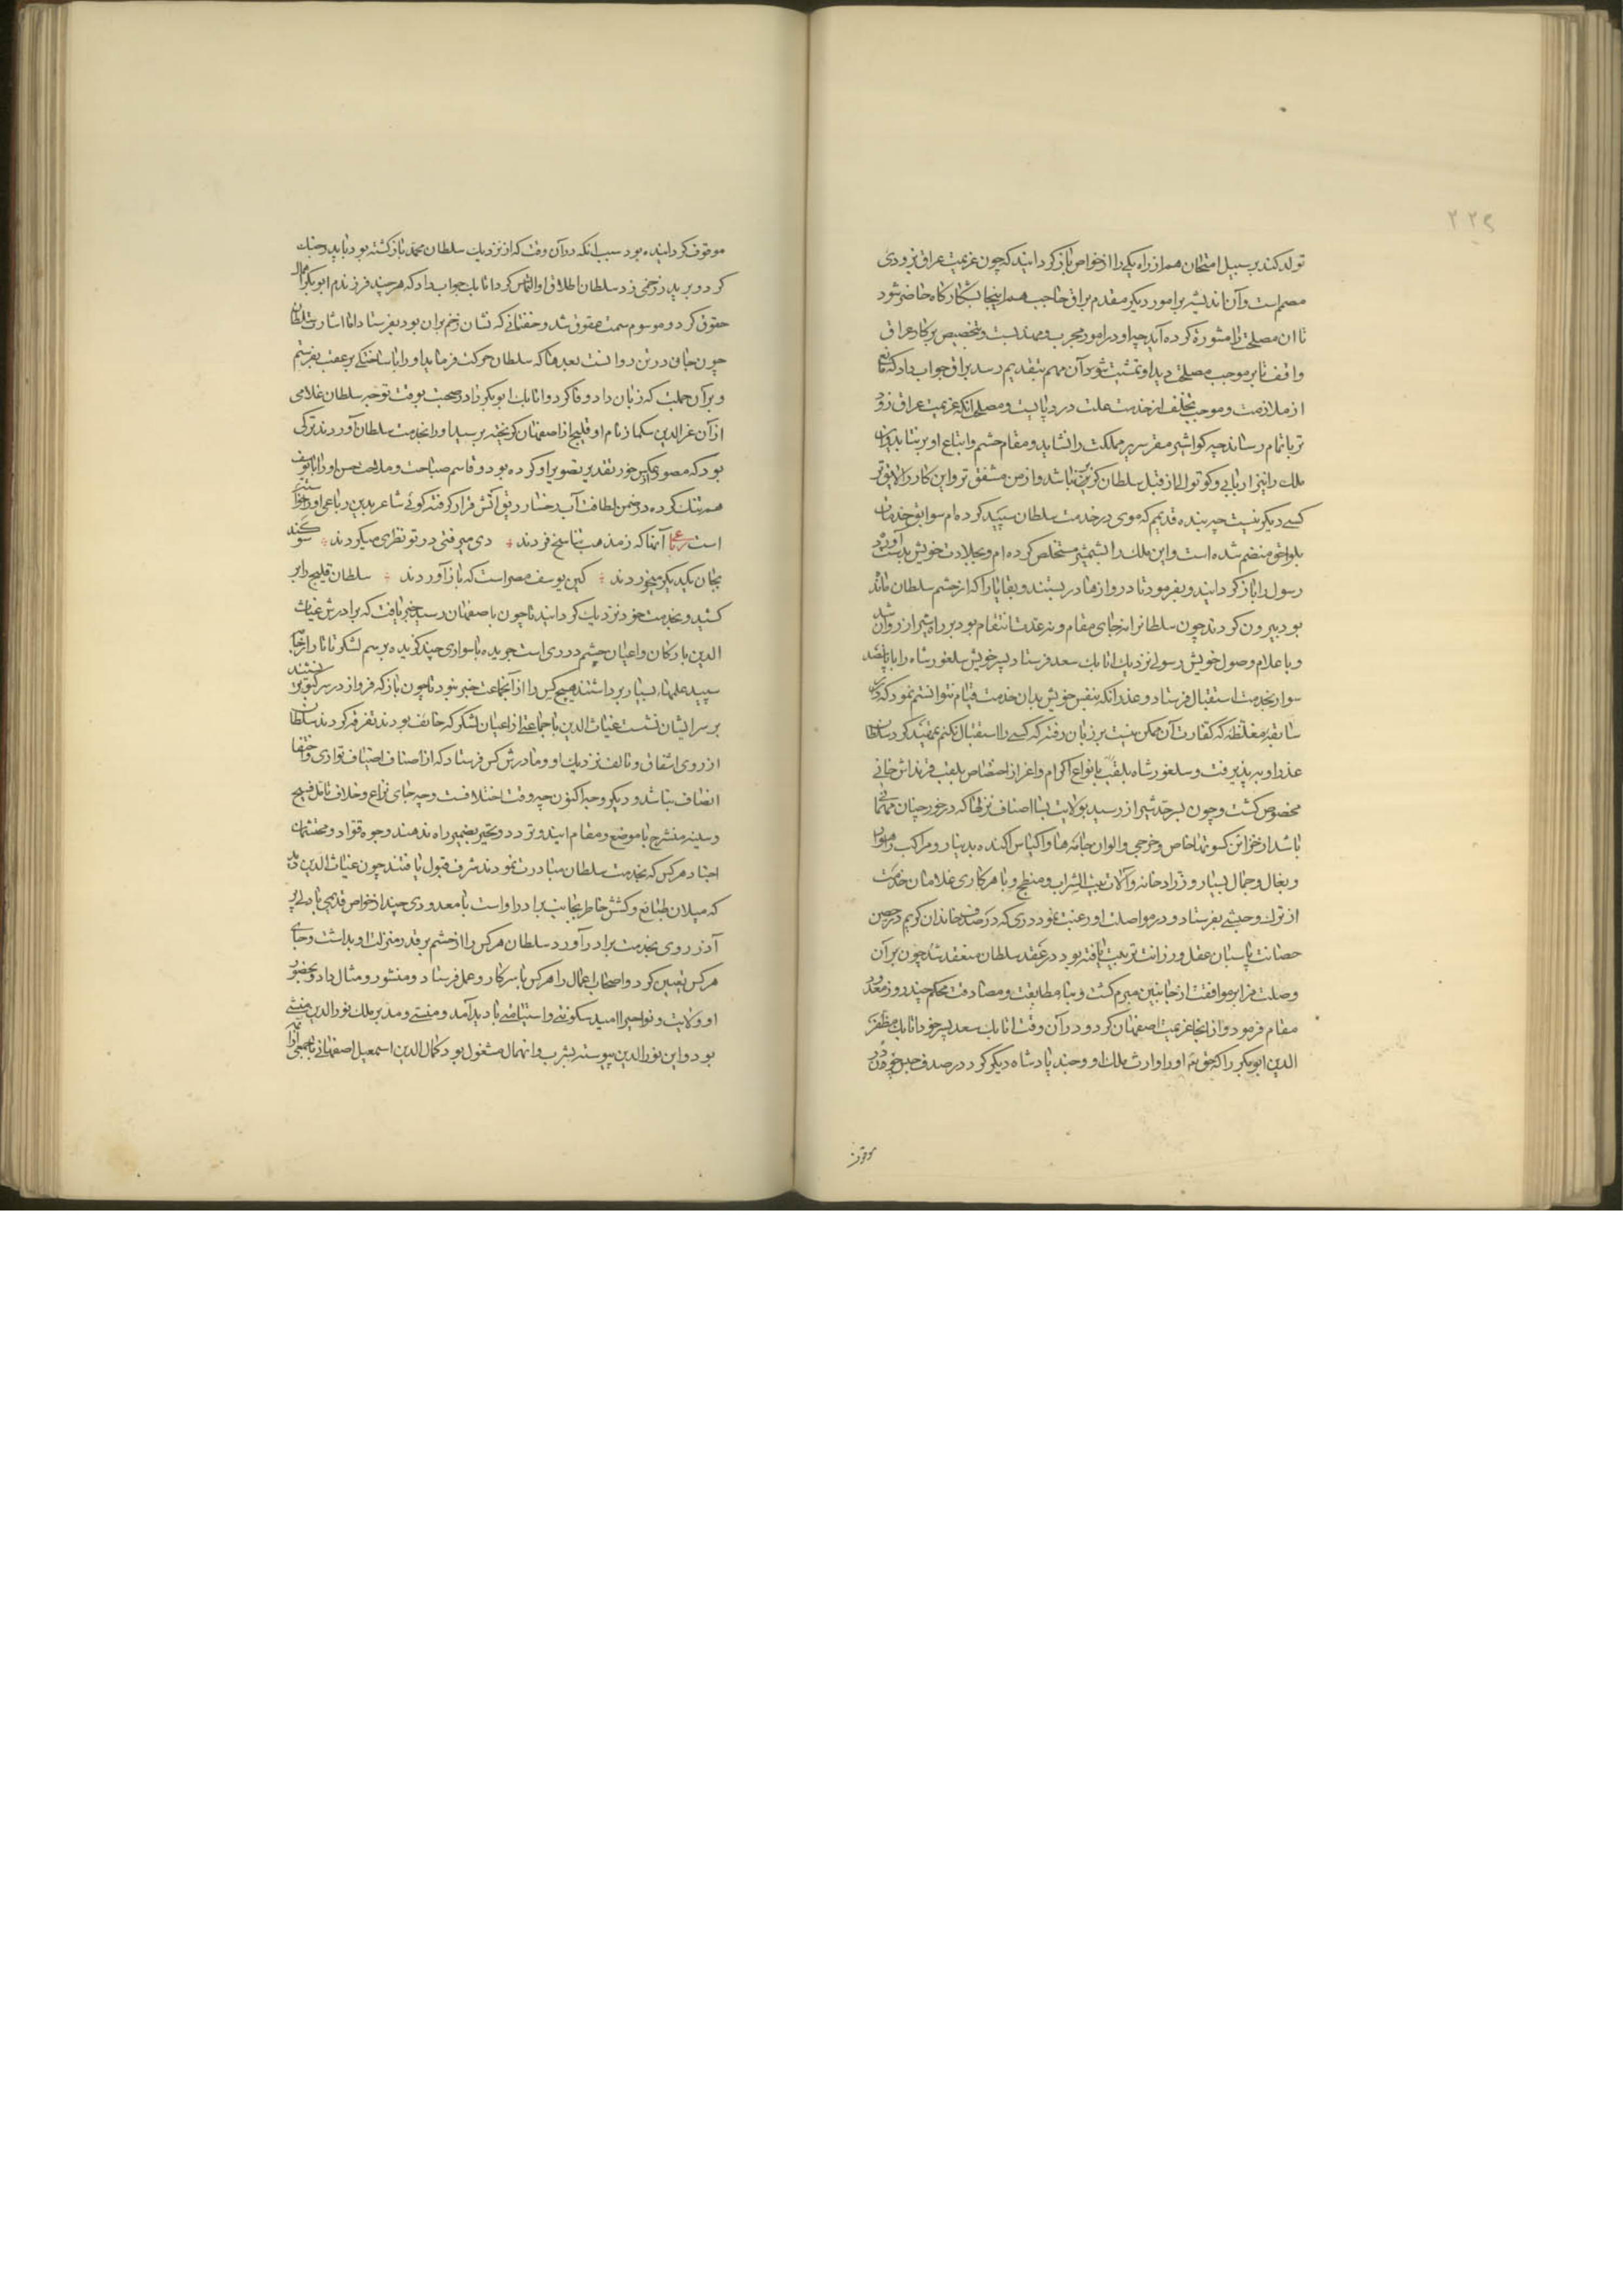 ۲۲۹
تولد کند بر سبیل امتحان هم از راه یکی را از خواص باز کردانید که چون عزیمت عراق بزودی
مصمم است و آن اندیشه بر امور دیکر مقدم براق حاجب هم اینجا بشکارکاه حاضر شود
تا آن مصلحت را مشورة کرده آید چه او در امور مجرب و مهذبست و بتخصیص بر کار عراق
واقف تا بر موجب مصلحت دید او تمشیت شود و آن مهم بتقدیم رسد براق جواب داد که مانع
از ملازمت و موجب تخلف از خدمت علت درد پایست و مصلحت آنکه عزیمت عراق زود
تر باتمام رساند چه کواشیر مقر سریر مملکت را نشاید و مقام حشم و اتباع او بر نتابد و این
ملک را نیز از نایبی و کوتوالی از قبل سلطان کزیر نباشد و از من مشفق تر و این کار را لایق تر
کسی دیکر نیست چه بنده قدیمم که موی در خدمت سلطان سپید کرده ام سوابق خدمات
بلواحق منضم شده است و این ملک را بشمشیر مستخلص کرده ام و بجلادت خویش بدست آورده
رسول را باز کردانید و بفرمود تا دروازها دربستند و بقایا را که از حشم سلطان مانده
بود بیرون کردند چون سلطانرا نه جای مقام و نه عدت انتقام بود بر راه شیراز روان شد
و باعلام وصول خویش رسولی نزدیک اتابک سعد فرستاد پسر خویش سلغور شاه را با پانصد
سوار بخدمت استقبال فرستاد و عذر آنکه بنفس خویش بدان خدمت قیام نتوانستم نمود که در
سابقه مغلظه که کفارت آن ممکن نیست بر زبان رفته که کسی را استقبال نکنم تمهید کرد سلطان
عذر او بپذیرفت و سلغور شاه بلقب بانواع اکرام و اعزاز اختصاص بلقب فرنداش خانی
مخصوص کشت و چون بسرحد شیراز رسید بولایت بسا اصناف نزلها که در خور چنان مهمانی
باشد از خزائن کسوتها خاص و خرجی و الوان جامه ها و اکیاس اکنده بدینار و مراکب
و بغال و جمال بسیار و زرادخانه و آلات بیت الشراب و مطبخ و با هر کاری غلامان خدمت
از ترک و حبشی بفرستاد و در مواصلت او رغبت نمود دری که در صدف خاندان کریم در حصن
حصانت پاسبان عقل و رزانت تربیت یافته بود در عقد سلطان منعقد شد چون بر آن
وصلت مرایر موافقت از جانبین مبرم کشت و بناء مطابقت و مصادقت محکم چند روز معدود
مقام فرمود و از آنجا عزیمت اصفهان کرد و در آن وقت اتابک سعد پسر خود اتابک مظفر
الدین ابوبکر را که حق تع او را وارث ملک او و چند پادشاه دیکر کرد در صدف حبس چون در
موقوف
موقوف کردانیده بود سبب آنکه در آن وقت که از نزدیک سلطان محمد باز کشته بود با پدر جنک
کرد و بر پدر زخمی زد سلطان اطلاق او التماس کرد اتابک جواب داد که هر چند فرزندم ابوبکر اهمال
حقوق کرد و موسوم سمت عقوق شد و خفتانی که نشان زخم بران بود بفرستاد اما اشارت سلطان
چون جان در تن روانست بعد ما که سلطان حرکت فرماید او را با ساختکی بر عقب بفرستم
و بر آن جملت که زبان داد وفا کرد و اتابک ابوبکر را در صحبت بوقت توجه سلطان غلامی
از آن عز الدین سکماز نام او قلیج از اصفهان کریخته برسید او را بخدمت سلطان آوردند ترکی
بود که مصور تقدیر تصویر او کرده بود و قاسم صباحت و ملاحت حسن او را با یوسف
هم تنک کرده در ضمن لطافت آب رخسار رقیق آتش قرار کرفته کوئی شاعر بدین رباعی او را خواسته
است رباعی آنها که ز مذهب تناسخ فردند ؞ دی میرفتی در تو نظری میکردند ؞ سوکند
بجان یکدیکر میخوردند ؞ کین یوسف مصراست که باز آوردند ؞ سلطان قلیج را بر
کشید و بخدمت خود نزدیک کردانید تا چون باصفهان رسید خبر یافت که برادرش غیاث
الدین با رکان و اعیان حشم در ری است جریده با سواری چند کزیده برسم لشکر تاتار از
سپید علمها بسیار برداشتند هیچ کس را از آنجماعت خبر نبود تا چون باز که فرو از در سر کبوتر نشیند
بر سر ایشان نشست غیاث الدین با جماعتی از اعیان لشکر که خائف بودند تفرقه کردند سلطان
از روی اشفاق و تالف نزدیک او و مادرش کس فرستاد که از اصناف اضیاف تواری و اختفا
انصاف نباشد و دیکر و چه اکنون چه وقت اختلافست و چه جای نزاع و خلاف با دل فسیح
و سینه منشرح با موضع و مقام ایند و تردد و تحیر بضمیر راه ندهند وجوه قواد و محتشمان
اجناد هر کس که بخدمت سلطان مبادرت نمودند شرف قبول یافتند چون غیاث الدین دید
که میلان طبائع و کشش خاطر بجانب برادر او است با معدودی چند از خواص قدیمی با دلی پر
آزر روی بخدمت برادر آورد سلطان هر کس را از حشم بر قدر منزلت او بداشت و جای
هر کس تعیین کرد و اصحاب اعمال را هر کس با سر کار و عمل فرستاد و منشور و مثال داد و بحضور
او ولایت و نواحی را امید سکونتی و استیناسی بادید آمد و منشی و مدبر ملک نور الدین منشی
بود و این نور الدین پیوسته بشرب و انهمال مشغول بود کمال الدین اسمعیل اصفهانی با جمعی